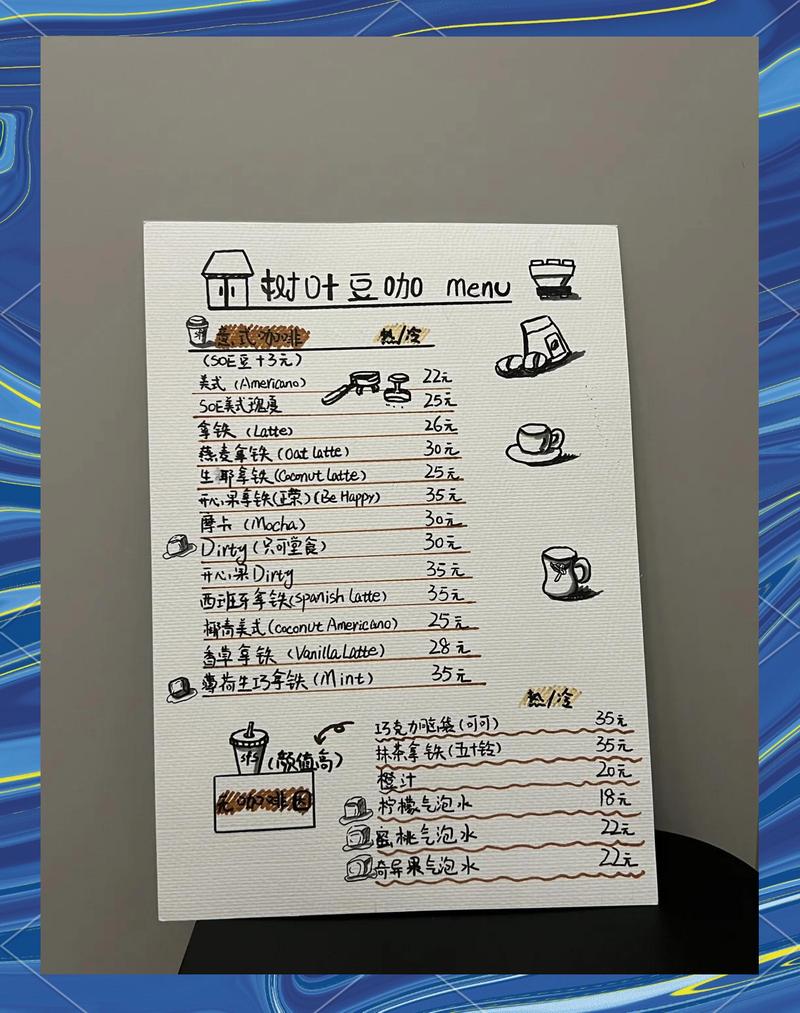 树叶豆咖 menu
意式咖啡 热/冷
(SOE豆+3元)
美式 (Americano) 22元
SOE美式瑰夏 25元
拿铁 (Latte) 26元
燕麦拿铁 (Oat Latte) 30元
生耶拿铁 (Coconut Latte) 25元
开心果拿铁(正荣)(Be Happy) 35元
摩卡 (Mocha) 30元
Dirty (只可堂食) 30元
开心果Dirty 35元
西班牙拿铁(Spanish Latte) 35元
椰青美式 (coconut Americano) 25元
香草拿铁 (Vanilla Latte) 28元
薄荷生巧拿铁 (Mint) 35元
热/冷
巧克力脏袋(可可) 35元
抹茶拿铁(五十铃) 35元
橙汁 20元
柠檬气泡水 18元
蜜桃气泡水 22元
奇异果气泡水 22元
sfs (颜值高)
无咖啡因